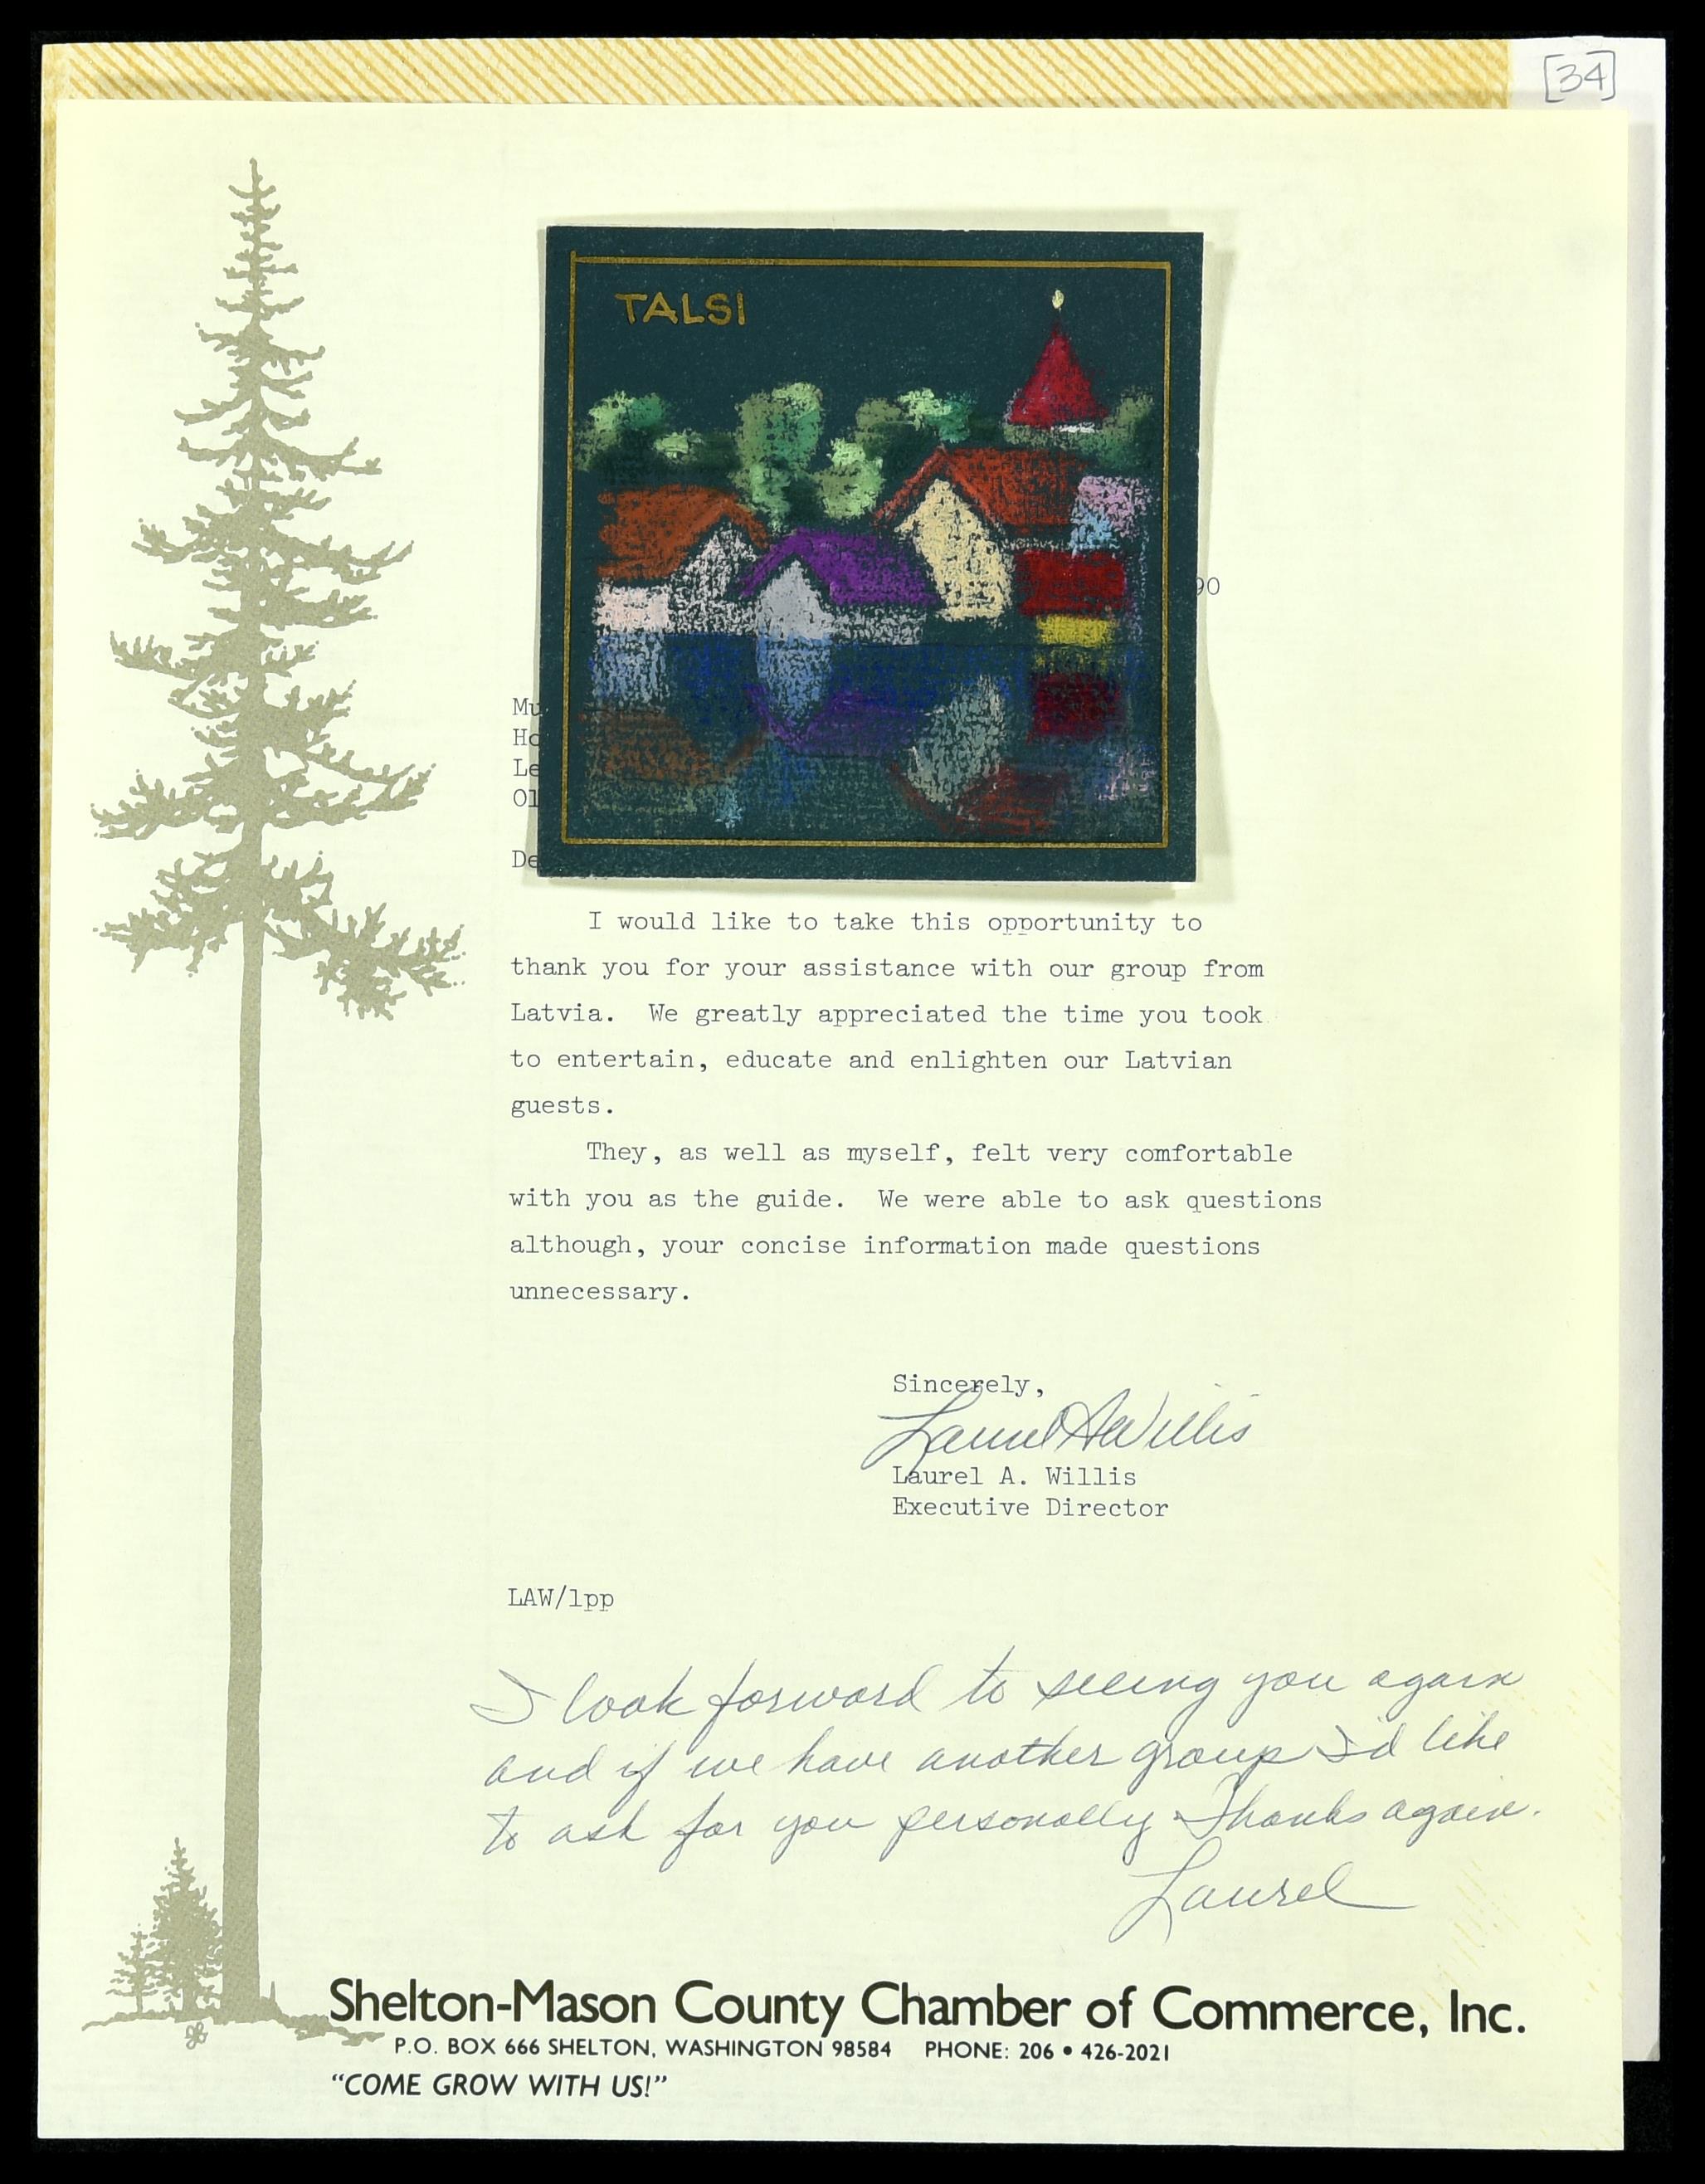 [34]
TALSI
90
Mu
Ho
Le
Ol
De
I would like to take this opportunity to
thank you for your assistance with our group from
Latvia. We greatly appreciated the time you took
to entertain, educate and enlighten our Latvian
guests.
They, as well as myself, felt very comfortable
with you as the guide. We were able to ask questions
although, your concise information made questions
unnecessary.
Sincerely,
Laurel A Willis
Laurel A. Willis
Executive Director
LAW/lpp
I look forward to seeing you again
and if we have another group I'd like
to ask for you personally Thanks again.
Laurel
Shelton-Mason County Chamber of Commerce, Inc.
P.O. BOX 666 SHELTON, WASHINGTON 98584 PHONE: 206 • 426-2021
"COME GROW WITH US!"